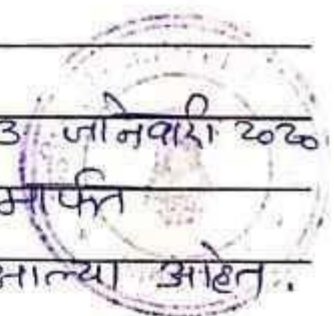 ३ जानेवारी २०२०
मार्फत
झाल्या आहेत.